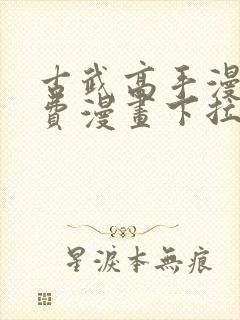 古武高手漫
費漫畫下拉
星淚本無痕